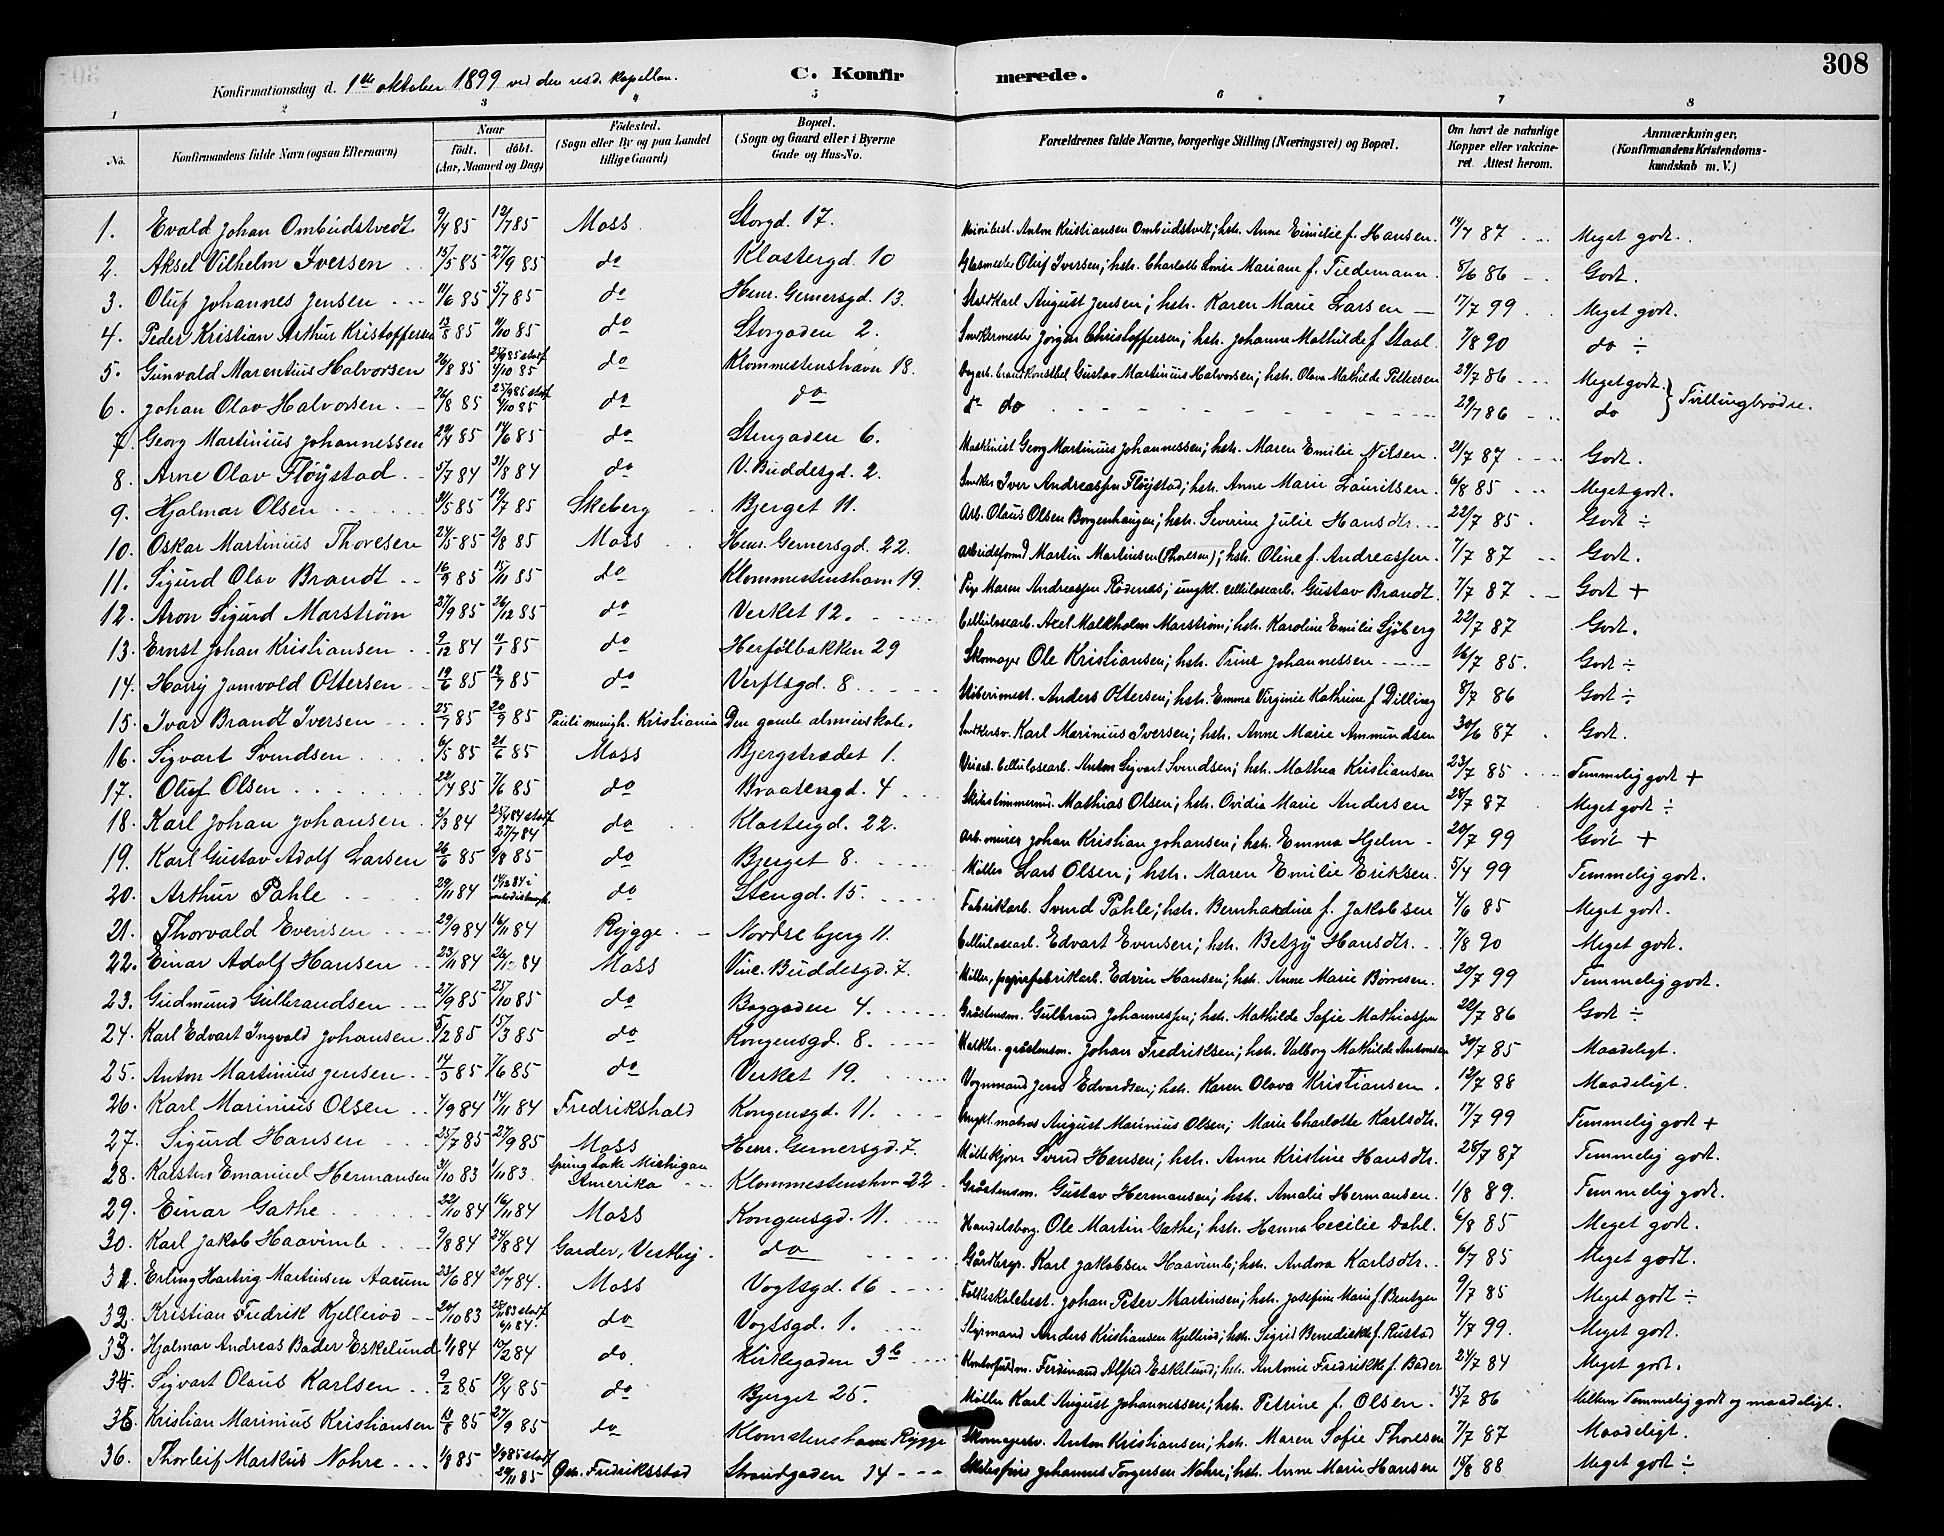 308
Konfirmationsdag d. 1ste oktober 1899 ved den resd. kapellan. C. Konfirmerede.
1 2 3 4 5 6 7 8
No. Konfirmandens fulde Navn (ogsaa Efternavn) Naar født. døbt. (Aar, Maaned og Dag) Fødested. (Sogn eller By og paa Landet tillige Gaard) Bopæl. (Sogn og Gaard eller i Byerne Gade og Hus-No. Forældrenes fulde Navne, borgerlige Stilling (Næringsvei) og Bopæl. Om havt de naturlige Kopper eller vakcineret. Attest herom. Anmærkninger. (Konfirmandens Kristendomskundskab m. V.)
1. Evald Johan Ombudstvedt 9/4 85 12/7 85 Moss Storgd. 17. Anton Kristiansen Ombudstvedt; hstr. Anne Emilie f. Hansen. 14/7 87 Meget godt.
2. Aksel Vilhelm Iversen 15/5 85 27/9 85 do Klostergd. 10 Glasmester Oluf Iversen; hstr. Charlotte Lovise Mariane f. Tiedemann. 8/6 86 Godt.
3. Oluf Johannes Jensen 11/6 85 5/7 85 do Henr. Gernersgd. 13. Staldkarl August Jensen; hstr. Karen Marie Larsen 17/7 99 Meget godt.
4. Peder Kristian Arthur Kristoffersen 13/8 85 11/10 85 do Storgaden 2. Snedkermester Jörgen Christoffersen; hstr. Johanne Mathilde f Staal 7/8 90 do ÷
5. Gunvald Marentius Halvorsen 26/8 85 25/9 85 stadf. 4/10 85 do Klommestenshavn 18. Gustav Martinius Halvorsen; hstr. Olava Mathilde Pettersen 29/7 86 Meget godt.
6. Johan Olav Halvorsen 26/8 85 25/9 85 stadf 4/10 85 do do do do 29/7 86 do } Tvillingbrødre.
7. Georg Martinius Johannessen 29/4 85 14/6 85 do Stengaden 6. Maskinist Georg Martinius Johannessen; hstr. Maren Emilie Nilsen. 21/7 87 Godt.
8. Arne Olav Fløystad 5/7 84 31/8 84 do V. Buddesgd. 2. Snedker Iver Andreassen Fløystad; hstr. Anne Marie Lauritsen. 6/8 85 Meget godt.
9. Hjalmar Olsen 31/5 85 19/7 85 Skeberg Bjerget 11. Arb. Olaus Olsen Borgenhaugen; hstr. Severine Julie Hansdtr. 22/7 85. Godt ÷
10. Oskar Martinius Thoresen 24/5 85 2/8 85 Moss Henr. Gernersgd. 22. Arbeidsformd Martin Martinsen (Thoresen); hstr. Oline f. Andreassen. 7/7 87 Godt.
11. Sigurd Olav Brandt 16/9 85 15/11 85 do Klommestenshavn 19. Pige Maren Andreassen Rödenes; ungkl. cellulosearb. Gustav Brandt. 7/7 87 Godt +
12. Aron Sigurd Marström 27/9 85 26/12 85 do Verket 12. Cellulosearb. Axel Malkholm Marström; hstr. Karoline Emilie Sjöberg 22/7 87 Godt.
13. Ernst Johan Kristiansen 9/12 84 11/1 85 do Herfölbakken 29 Skomager Ole Kristiansen; hstr. Trine Johannessen 16/7 85. Godt ÷
14. Harry Jomvold Ottersen 19/6 85 12/7 85 do Verftsgd. 8. Anders Ottersen; hstr. Emma Virginie Kathrine f Dilling 8/7 86 Godt ÷
15. Ivar Brandt Iversen 25/7 85 20/9 85 Pauli menigh. Kristiania Den gamle almueskole. Karl Marinius Iversen; hstr. Anne Marie Ammundsen 30/6 87 Godt.
16. Sigvart Svendsen 6/5 85 21/6 85 Moss Bjergstrædet 1. Cellulosearb. Anton Sigvart Svendsen; hstr. Mathea Kristiansen 23/7 85 Temmelig godt +
17. Oluf Olsen 22/4 85 7/6 85 do Braatengd. 4 Skibstimmermd. Mathias Olsen; hstr. Ovidia Marie Andersen 28/7 87 Meget godt ÷
18. Karl Johan Johansen 2/3 84 25/4 84 stadf 27/7 84 do Klostergd. 22. Arb. murer Johan Kristian Johansen; hstr. Emma Hjelm 20/7 99 Godt +
19. Karl Gustav Adolf Larsen 26/6 85 9/8 85 do Bjerget 8. Möller Lars Olsen; hstr. Maren Emilie Eriksen. 5/4 99 Temmelig godt.
20. Arthur Pahle 29/11 84 14/12 84 i do Stengd. 15. Fabrikarb. Svend Pahle; hstr. Bernhardine f. Jakobsen 4/6 85 Meget godt.
21. Thorvald Evensen 29/9 84 16/11 84 Rygge Nordre bjerg 11. Cellulosearb. Edvart Evensen; hstr. Betzy Hansdtr. 7/8 90 Meget godt.
22. Einar Adolf Hansen 23/11 84 26/12 84 Moss Vinc. Buddesgd. 7. Möller, papirfabrikarb. Edvin Hansen; hstr. Anne Marie Børresen. 20/7 99 Temmelig godt.
23. Gudmund Gulbrandsen 27/9 85 25/10 85 do Baggaden 4. Gråstensm. Gulbrand Johannessen; hstr. Mathilde Sofie Mathiassen 22/7 86 Godt ÷
24. Karl Edvart Ingvald Johansen 5/2 85 15/3 85 do Kongensgd. 8. gråstensm. Johan Fredriksen; hstr. Valborg Mathilde Antonsen 30/7 85 Maadeligt.
25. Anton Martinius Jensen 17/5 85 7/6 85 do Verket 19. Vognmand Jens Edvardsen; hstr. Karen Olava Kristiansen 12/7 88 Maadeligt.
26. Karl Marinius Olsen 7/9 84 14/11 84 Fredrikshald Kongensgd. 11. Ungkl. matros August Marinius Olsen; Marie Charlotte Karlsdtr. 17/7 99 Temmelig godt +
27. Sigurd Hansen 25/7 85 27/9 85 Moss Henr. Gernersgd. 7. Svend Hansen; hstr. Anne Kristine Hansdtr. 28/7 87 Temmelig godt.
28. Karsten Emanuel Hermansen 31/10 83 1/11 83. Spring Lake Michigan Amerika Klommestenshavn 22 Gråstensm. Gustav Hermansen; hstr. Amalie Hermansen. 1/8 89. Temmelig godt.
29. Einar Gathe 22/10 84 16/11 84 Moss Kongensgd. 11. Handelsborg. Ole Martin Gathe; hstr. Hanna Cecilie Dahl. 6/8 85 Meget godt.
30. Karl Jakob Haavimb 9/8 84 24/8 84 Garder, Vestby. do Gårdbrgr. Karl Jakobsen Haavimb; hstr. Andrea Karlsdtr. 6/7 85 Meget godt.
31. Erling Hartvig Martinsen Aarum 23/6 84 20/7 84. Moss Vogtsgd. 16 Folkeskolebest. Johan Peter Martinsen; hstr. Josefine Marie f Bentzen 9/7 85 Meget godt ÷
32. Kristian Fredrik Kjelleröd 20/10 83 28/11 83 stadf 6/1 84. do Vogtsgd. 1. Styrmand Anders Kristiansen Kjelleröd; hstr. Sigrid Benedikte f. Rustad 4/7 99. Meget godt.
33. Hjalmar Andreas Bader Eskelund 1/1 84 10/2 84 do. Kirkegaden 3b Ferdinand Alfred Eskelund; hstr. Antonie Fredrikke f. Bader 24/7 84 Meget godt.
34. Sigvart Olaus Karlsen 9/2 85 19/4 85 do Bjerget 25. Möller Karl August Johannessen; hstr. Petrine f. Olsen. 15/7 86 Mellem Temmelig godt og maadeligt.
35. Kristian Marinius Kristiansen 13/8 85 27/9 85 do Klomstenshavn Rygge Anton Kristiansen; hstr. Maren Sofie Thoresen 7/7 87 Maadeligt.
36. Thorleif Markus Nohre 1/8 85 2/9 85 stadf 29/11 85 Øst. Fredriksstad Strandgaden 14 Johannes Torgersen Nohre; hstr. Anne Marie Hansen 15/8 88 Meget godt ÷